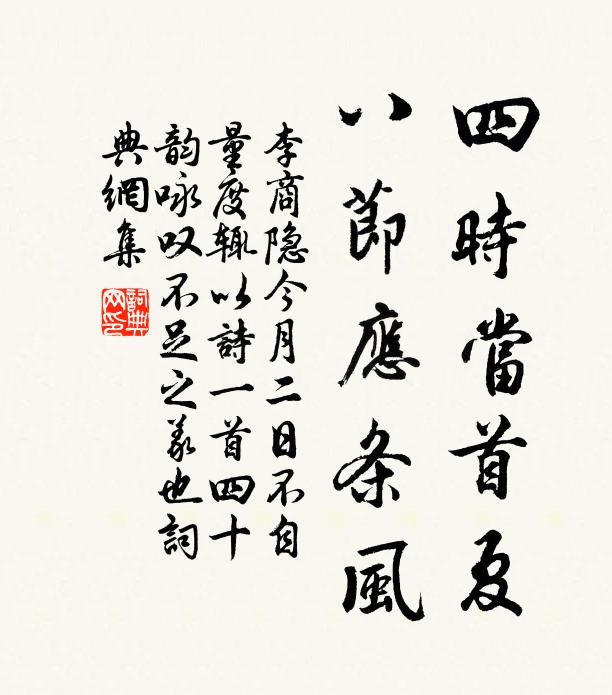 四時當首夏
八節應条風
李商隐今月二日不自
量度輒以詩一首四十
韵咏叹不足之義也詞
典網集
詞典
网印